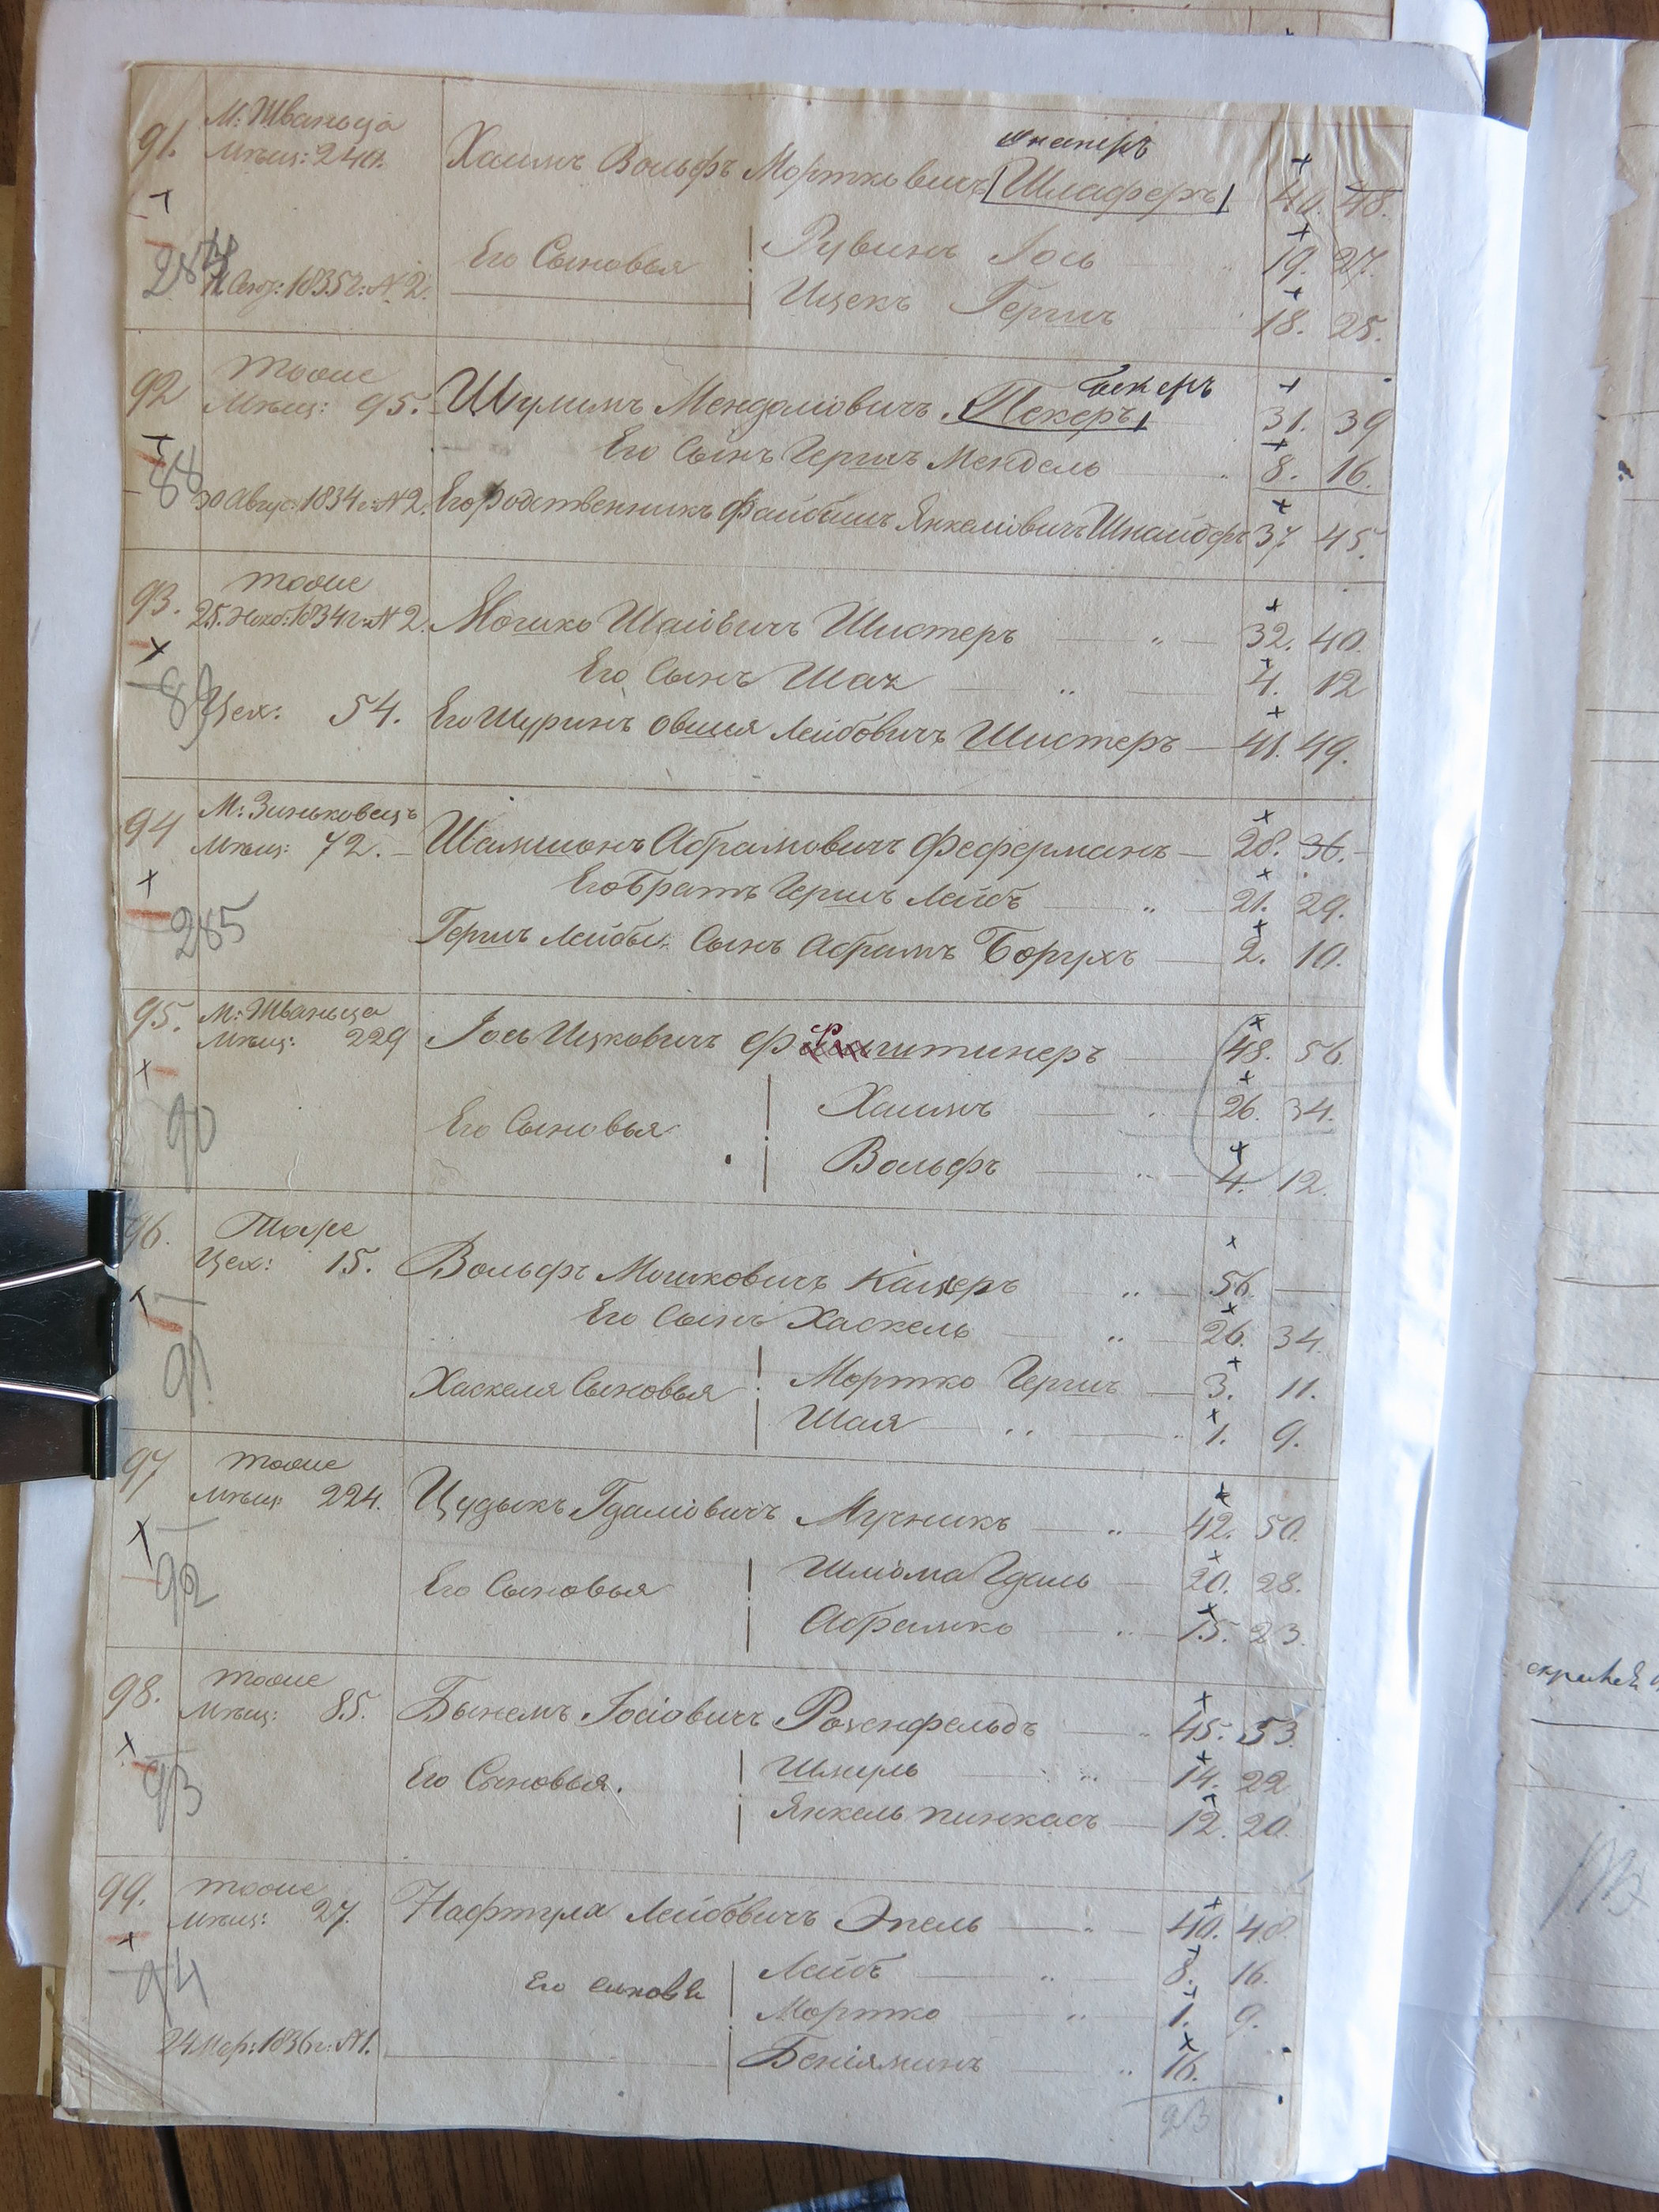 М: Жванца
91. Мѣщ: 240. Хаимъ Вольфъ Мортковичъ [Шлаферъ] 40. 48.
Его Сыновья Рувинъ Іось 19. 27.
1835г: №2. Ицекъ Гершъ 18. 25.
Тоже Бекеръ
92 Мѣщ: 95. Шулимъ Мендолiовичъ [Пекеръ] 31. 39
Его Сынъ Гершъ Мендель 8. 16.
88
30 Август: 1834г: №2. Его родственникъ Файбишъ Янкелiовичъ Шнайдеръ 37 45.
Тоже
93. 25. Нояб: 1834г: №2. Мошко Шаiовичъ Шистеръ 32. 40.
Его Сынъ Шая 4. 12
89
Цех: 54. Его Шуринъ Овшія Лейбовичъ Шистеръ 41. 49.
М: Зиньковецъ
94 Мѣщ: 72. Шамшонъ Абрамовичъ Феферманъ 28. 36.
Его Братъ Гершъ Лейбъ 21. 29.
285
Гершъ Лейбы Сынъ Абрамъ Борухъ 2. 10.
М: Жванца
95. Мѣщ: 229 Іось Ицковичъ 48. 56.
Хаимъ 26. 34.
90 Его Сыновья
Вольфъ 4. 12.
96. Тоже
Цех: 15. Вольфъ Мошковичъ 56.
Его Сынъ Хаскель 26. 34.
91
Хаскеля Сыновья Мортко Гершъ 3. 11.
Шая 1. 9.
97 Тоже
Мѣщ: 224. Цудыкъ Гдалiовичъ Мучникъ 42. 50.
92 Его Сыновья Шлiома Гдаль 20. 28.
Абрамко 15. 23.
98. Тоже
Мѣщ: 85. Бынемъ Іосiовичъ Розенфельдъ 45. 53.
93 Его Сыновья. Шмуль 14. 22
Янкель Пинкасъ 12. 20.
99. Тоже
Мѣщ: 27. Нафтула Лейбовичъ Эпель 40. 48
94 Его синовя Лейбъ 8. 16.
Мортко 1. 9.
24 Мар: 1836г: №1. Беніяминъ 16.
23